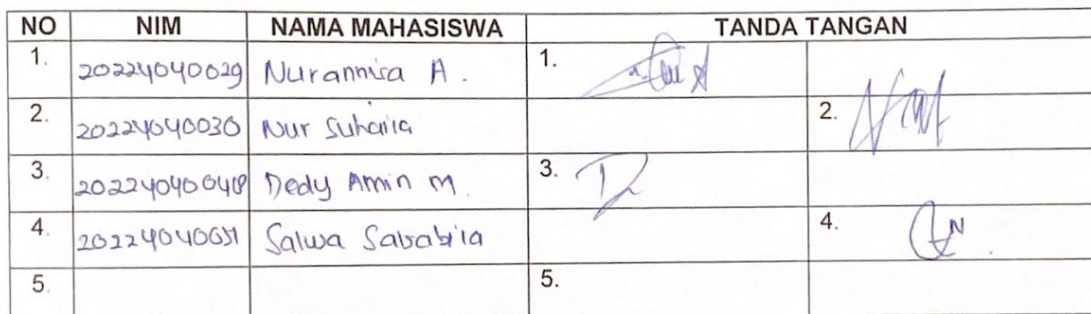 NO NIM NAMA MAHASISWA TANDA TANGAN
1. 20224040029 Nurannisa A. 1.
2. 20224040030 Nur Suhaila 2.
3. Dedy Amin M. 3.
4. Salwa Salsabila 4.
5. 5.